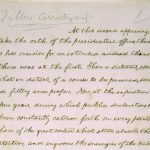 Fellow Countrymen:
At this second appearing
take the oath of the presidential office, there
is less occasion for an extended address than
there was at the first. Then a statement, some
what in detail, of a course to be pursued, seemed
fitting and proper. Now, at the expiration
four years, during which public declarations
been constantly called forth on every point
phase of the great contest which still absorbs the
attention, and engrosses the energies of the nation